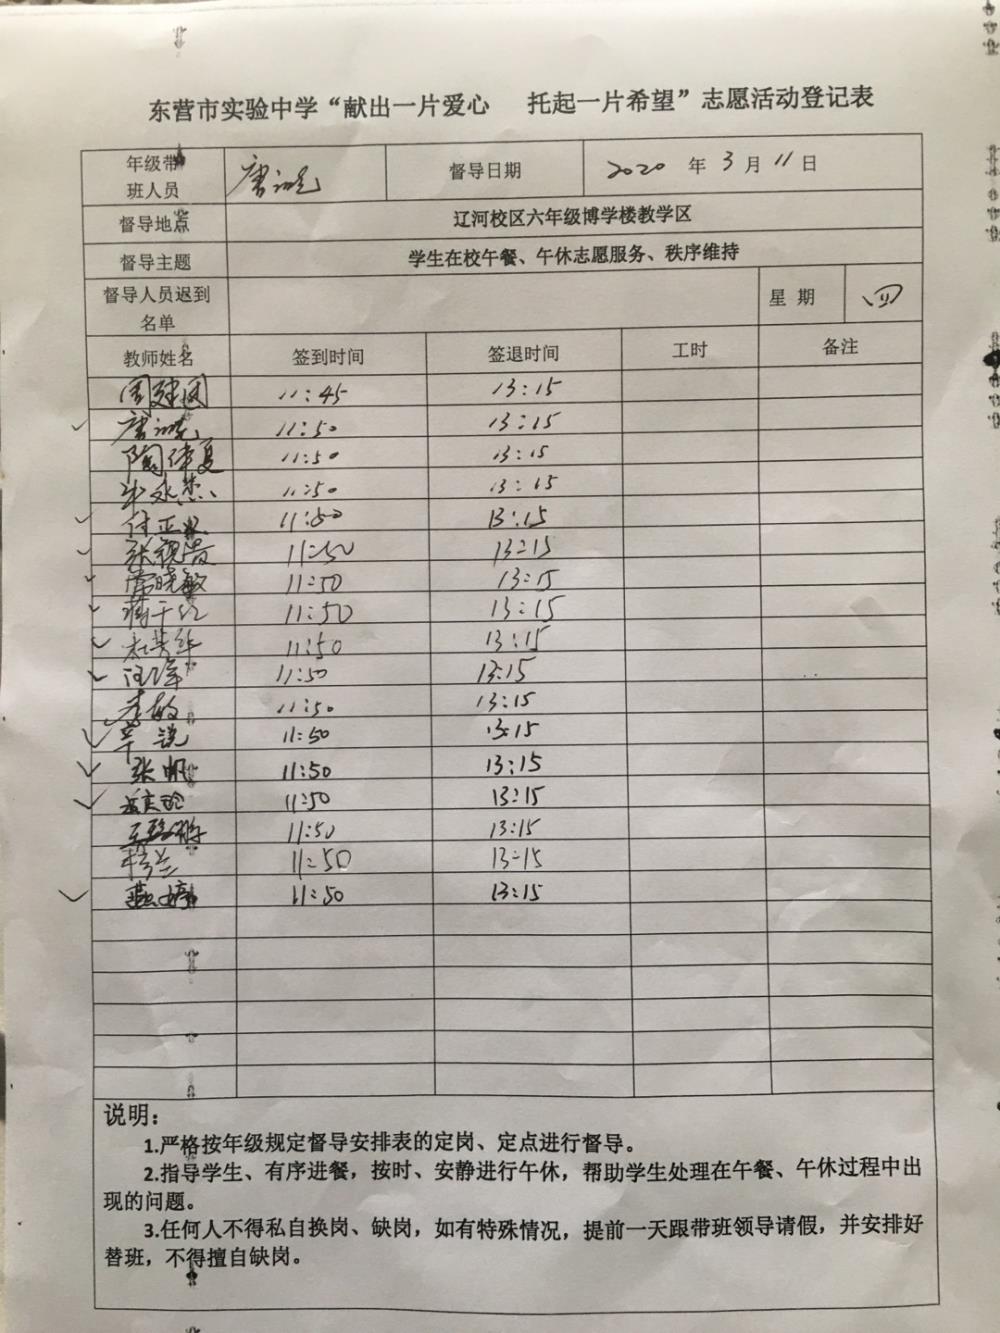 东营市实验中学“献出一片爱心 托起一片希望”志愿活动登记表
年级带班人员 督导日期 2020 年 3 月 11 日
督导地点 辽河校区六年级博学楼教学区
督导主题 学生在校午餐、午休志愿服务、秩序维持
督导人员迟到名单 星 期 四
教师姓名 签到时间 签退时间 工时 备注
周建国 11:45 13:15
11:50 13:15
陶律夏 11:50 13:15
牛永杰 11:50 13:15
付正义 11:50 13:15
张视贵 11:50 13:15
常晓敏 11:50 13:15
11:50 13:15
杜芳华 11:50 13:15
11:50 13:15
李敏 11:50 13:15
辛锐 11:50 13:15
张帆 11:50 13:15
11:50 13:15
11:50 13:15
杨兰 11:50 13:15
燕婷 11:50 13:15
说明：
1.严格按年级规定督导安排表的定岗、定点进行督导。
2.指导学生、有序进餐，按时、安静进行午休，帮助学生处理在午餐、午休过程中出
现的问题。
3.任何人不得私自换岗、缺岗，如有特殊情况，提前一天跟带班领导请假，并安排好
替班，不得擅自缺岗。